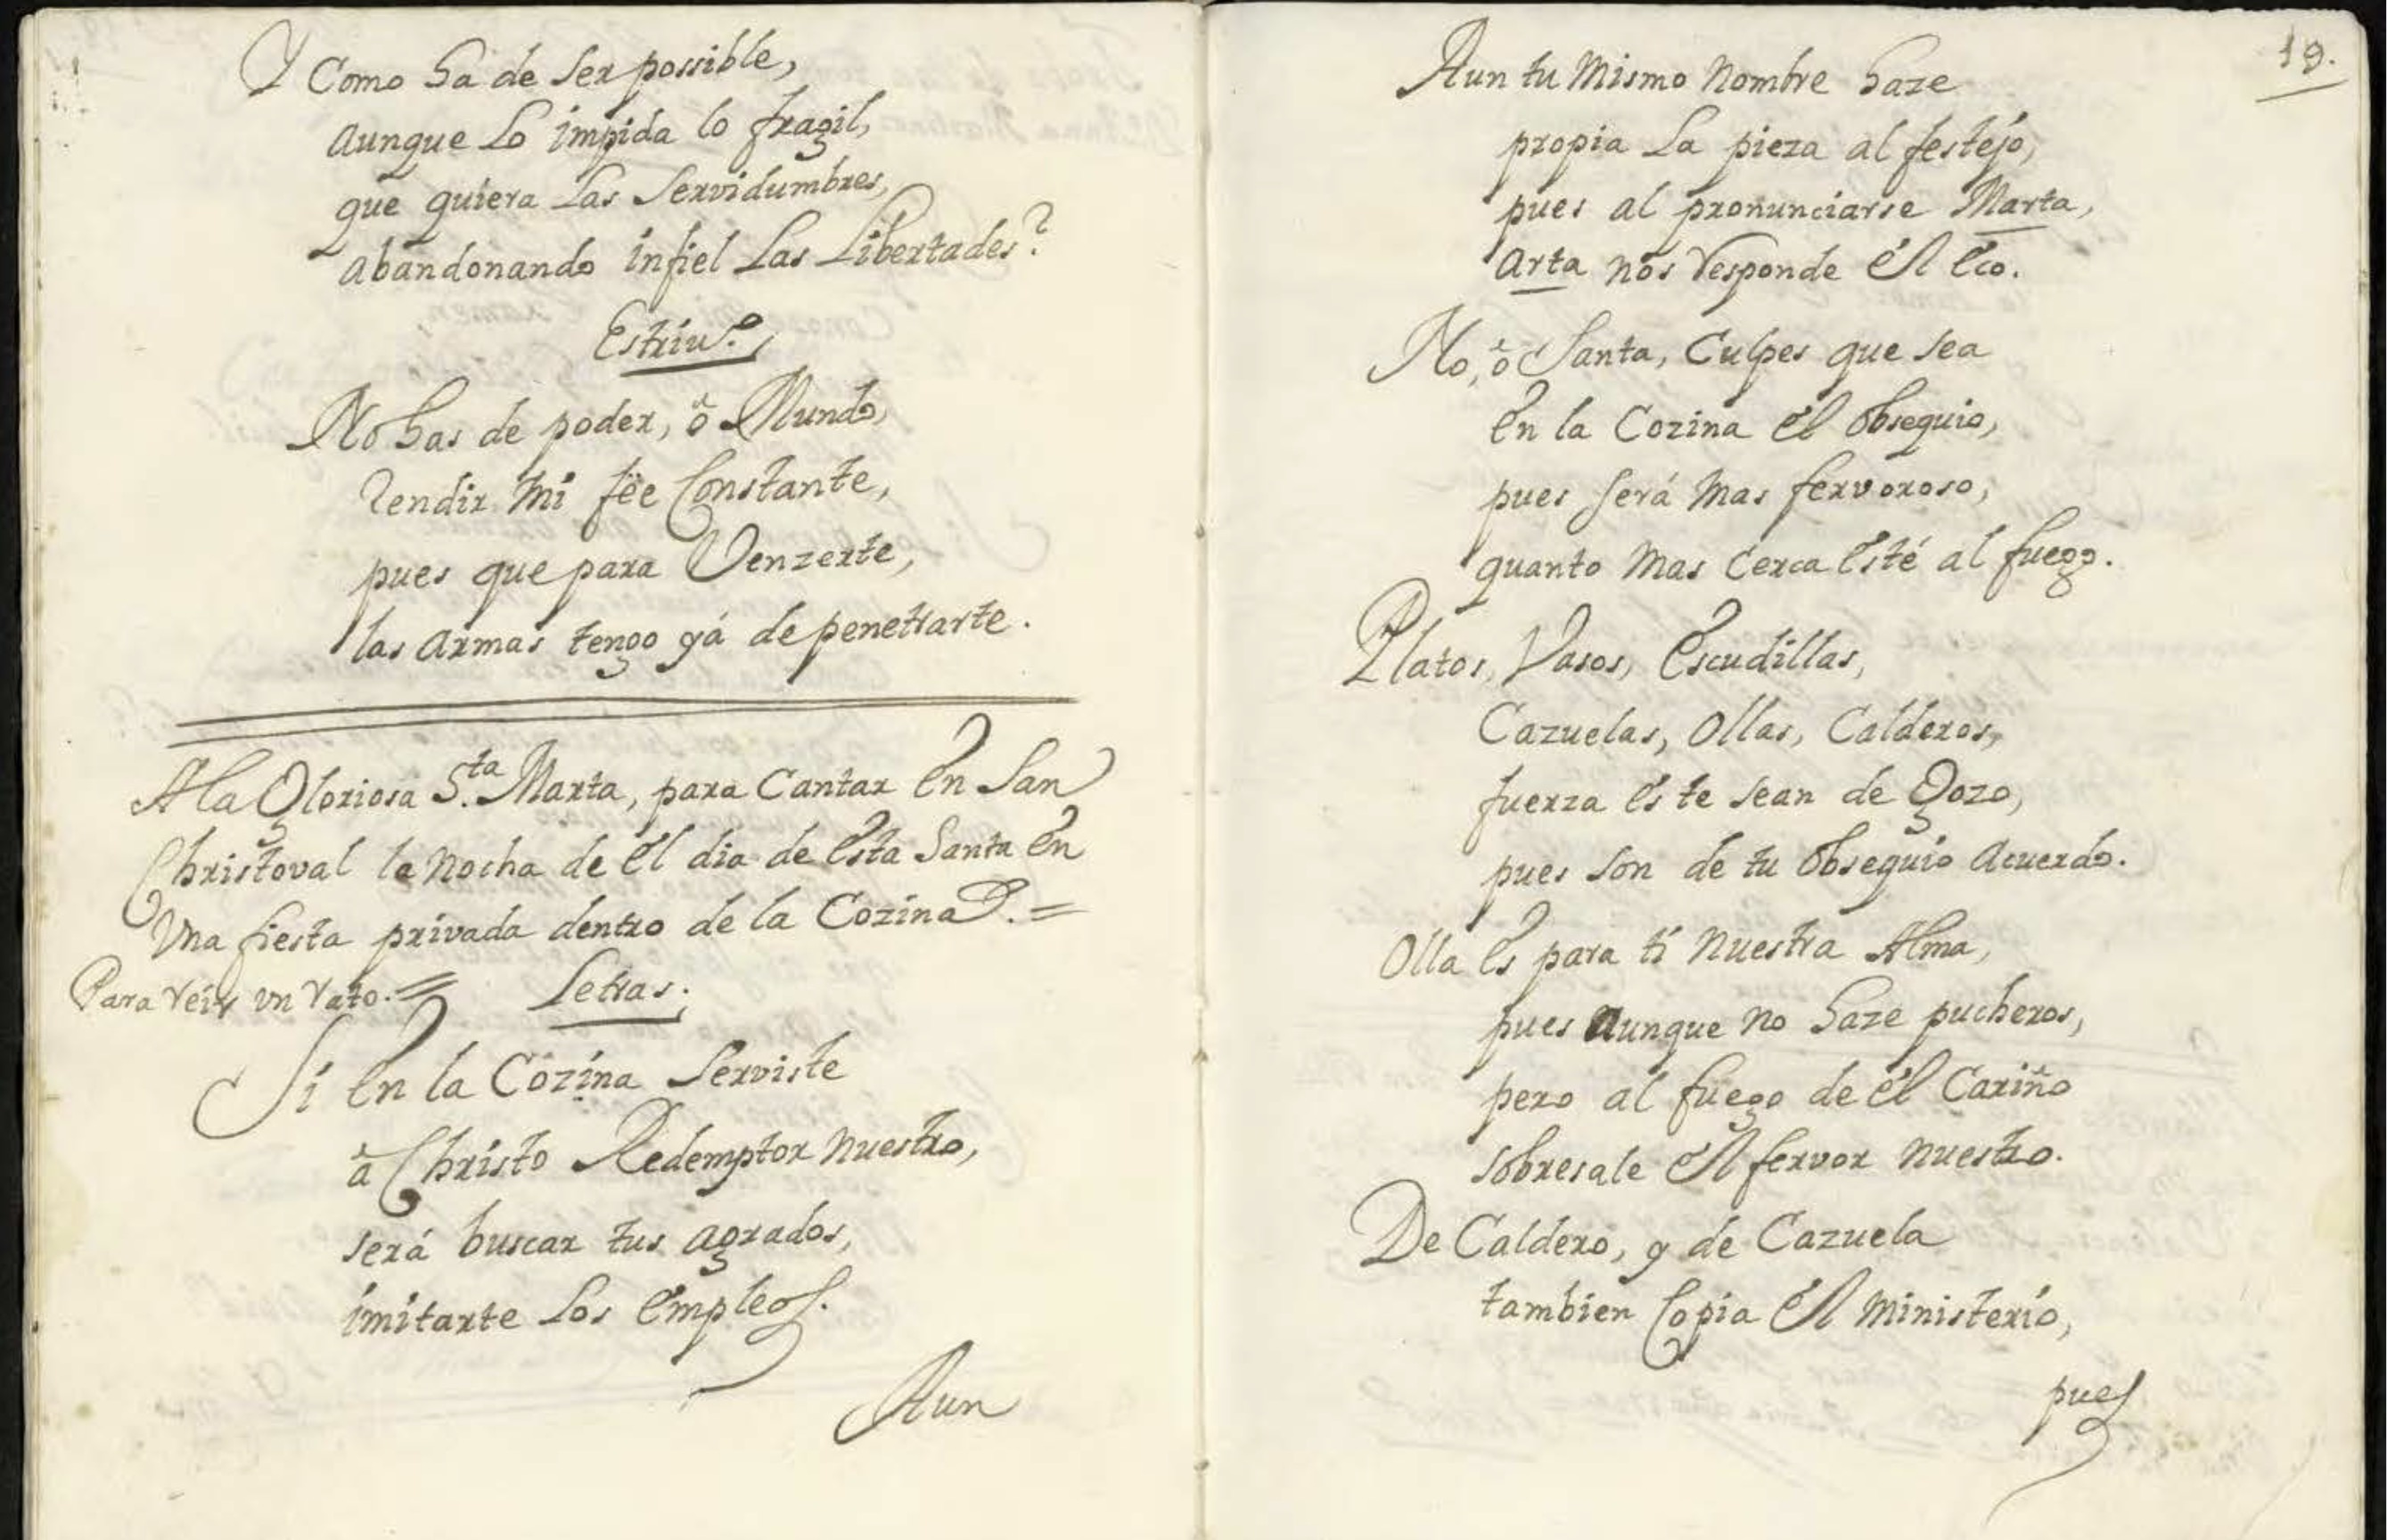 Y Como ha de ser possible,
aunque lo impida lo fragil,
que quiera las servidumbres,
abandonando infiel las Libertades?
Estriv.º
No has de poder, ô Mundo,
rendir mi fëe Constante,
pues que para Venzerte,
las armas tengo yá de penetrarte.
A la Gloriosa S.ta Marta, para Cantar en San
Christoval la Nocha de el dia de esta Santa en
Una fiesta privada dentro de la Cozina. =
Para reir un rato. = Letras.
Si en la Cozina serviste
â Christo Redemptor nuestro,
será buscar tus agrados,
imitarte los empleos.
Aun
19.
Aun tu Mismo Nombre haze
propia la pieza al festejo,
pues al pronunciarse Marta,
arta nos responde el eco.
No, ô Santa, Culpes que sea
en la Cozina el obsequio,
pues será mas fervoroso,
quanto mas cerca esté al fuego.
Platos, Vasos, escudillas,
Cazuelas, ollas, Calderos,
fuerza es te sean de Gozo,
pues son de tu obsequio acuerdo.
Olla es para ti nuestra Alma,
pues aunque no haze pucheros,
pero al fuego de el Cariño
sobresale el fervor nuestro.
De Caldero, y de Cazuela
tambien Copia el ministerio,
pues